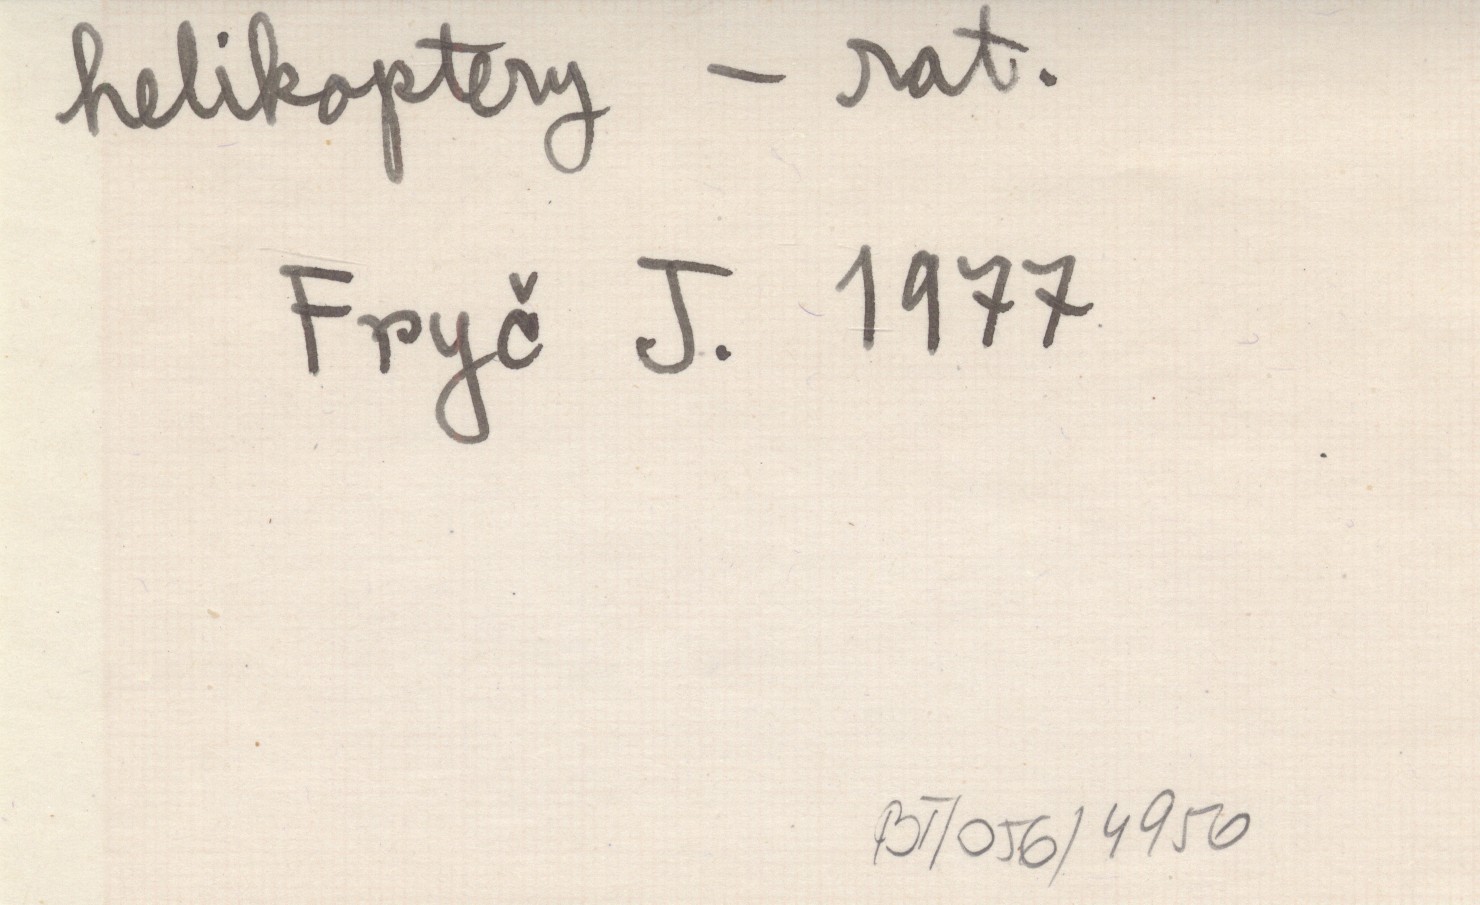 helikoptery - rat.
Fryč J. 1977
BT/056/4950